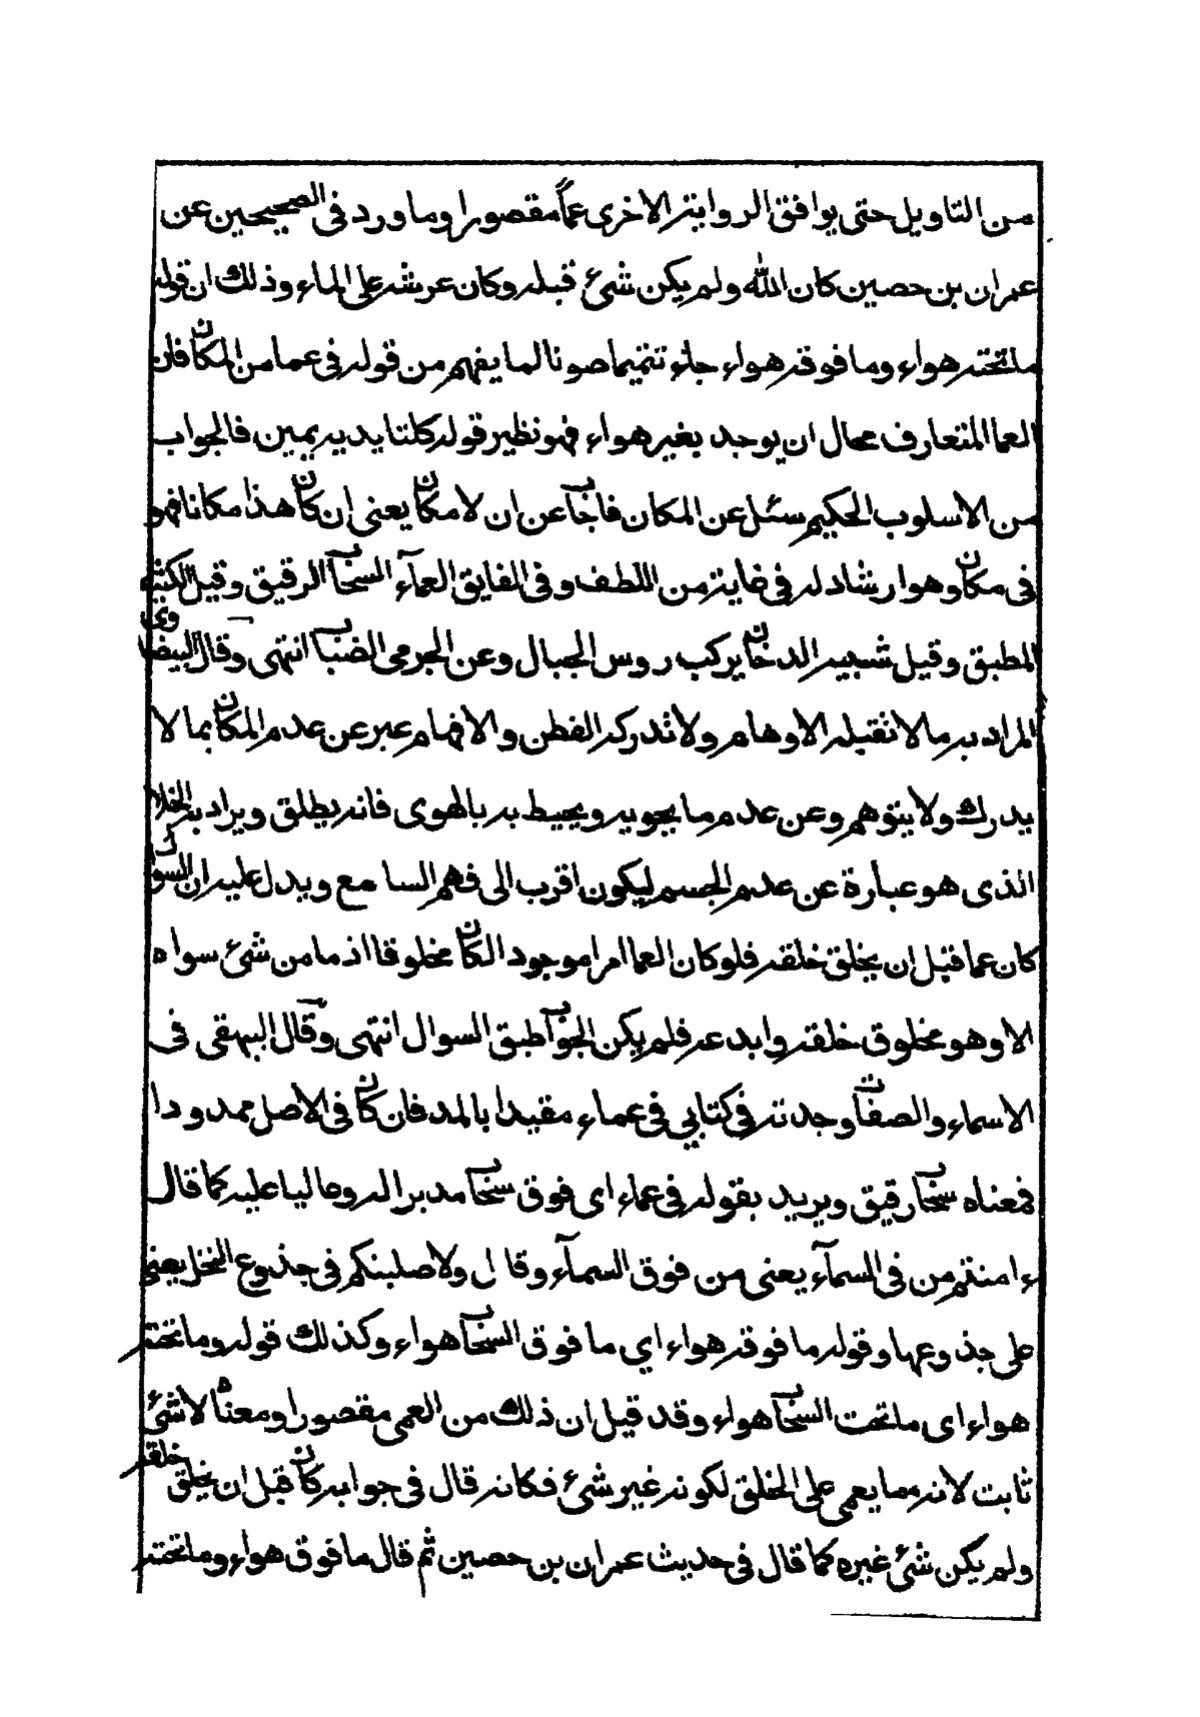 من التاويل حتى يوافق الرواية الاخرى عماً مقصورا وما ورد فى الصحيحين عن
عمران بن حصين كان الله ولم يكن شئ قبله وكان عرشه على الماء وذلك ان قوله
ما تحته هواء وما فوقه هواء جاء تتميما صونا لما يفهم من قوله فى عما من المكان فان
العما المتعارف محال ان يوجد بغير هواء فهو نظير قوله كلتا يديه يمين فالجواب
من الاسلوب الحكيم سئل عن المكان فاجاب عن ان لا مكان يعنى ان كان هذا مكانا فهو
فى مكان وهو ارشاد له فى غاية من اللطف وفى الفايق العمآء السحاب الرقيق وقيل الكثيف
المطبق وقيل شبيه الدخان يركب روس الجبال وعن الجرمى الضباب انتهى وقال البيضاوى
المراد به ما لا تقبله الاوهام ولا تدركه الفطن والافهام عبر عن عدم المكان بما لا
يدرك ولا يتوهم وعن عدم ما يحويه ويحيط به بالهوى فانه يطلق ويراد به الخلاء
الذى هو عبارة عن عدم الجسم ليكون اقرب الى فهم السامع ويدل عليه ان السوال
كان عما قبل ان يخلق خلقه فلو كان العما امرا موجودا لكان مخلوقا اذ ما من شئ سواه
الا وهو مخلوق خلقه وابدعه فلم يكن الجواب طبق السوال انتهى وقال البيهقى فى
الاسماء والصفات وجدته فى كتابي فى عماء مقيدا بالمد فان كان فى الاصل ممدودا
فمعناه سحاب رقيق ويريد بقوله فى عماء اى فوق سحاب مدبرا له وعاليا عليه كما قال
ءامنتم من فى السمآء يعنى من فوق السمآء وقال ولاصلبنكم فى جذوع النخل يعنى
على جذوعها وقوله ما فوقه هواء اي ما فوق السحاب هواء وكذلك قوله وما تحته
هواء اى ما تحت السحاب هواء وقد قيل ان ذلك من العمى مقصورا ومعناه لا شئ
ثابت لانه مما يعمى على الخلق لكونه غير شئ فكانه قال فى جوابه كان قبل ان يخلق خلقه
ولم يكن شئ غيره كما قال فى حديث عمران بن حصين ثم قال ما فوق هواء وما تحته